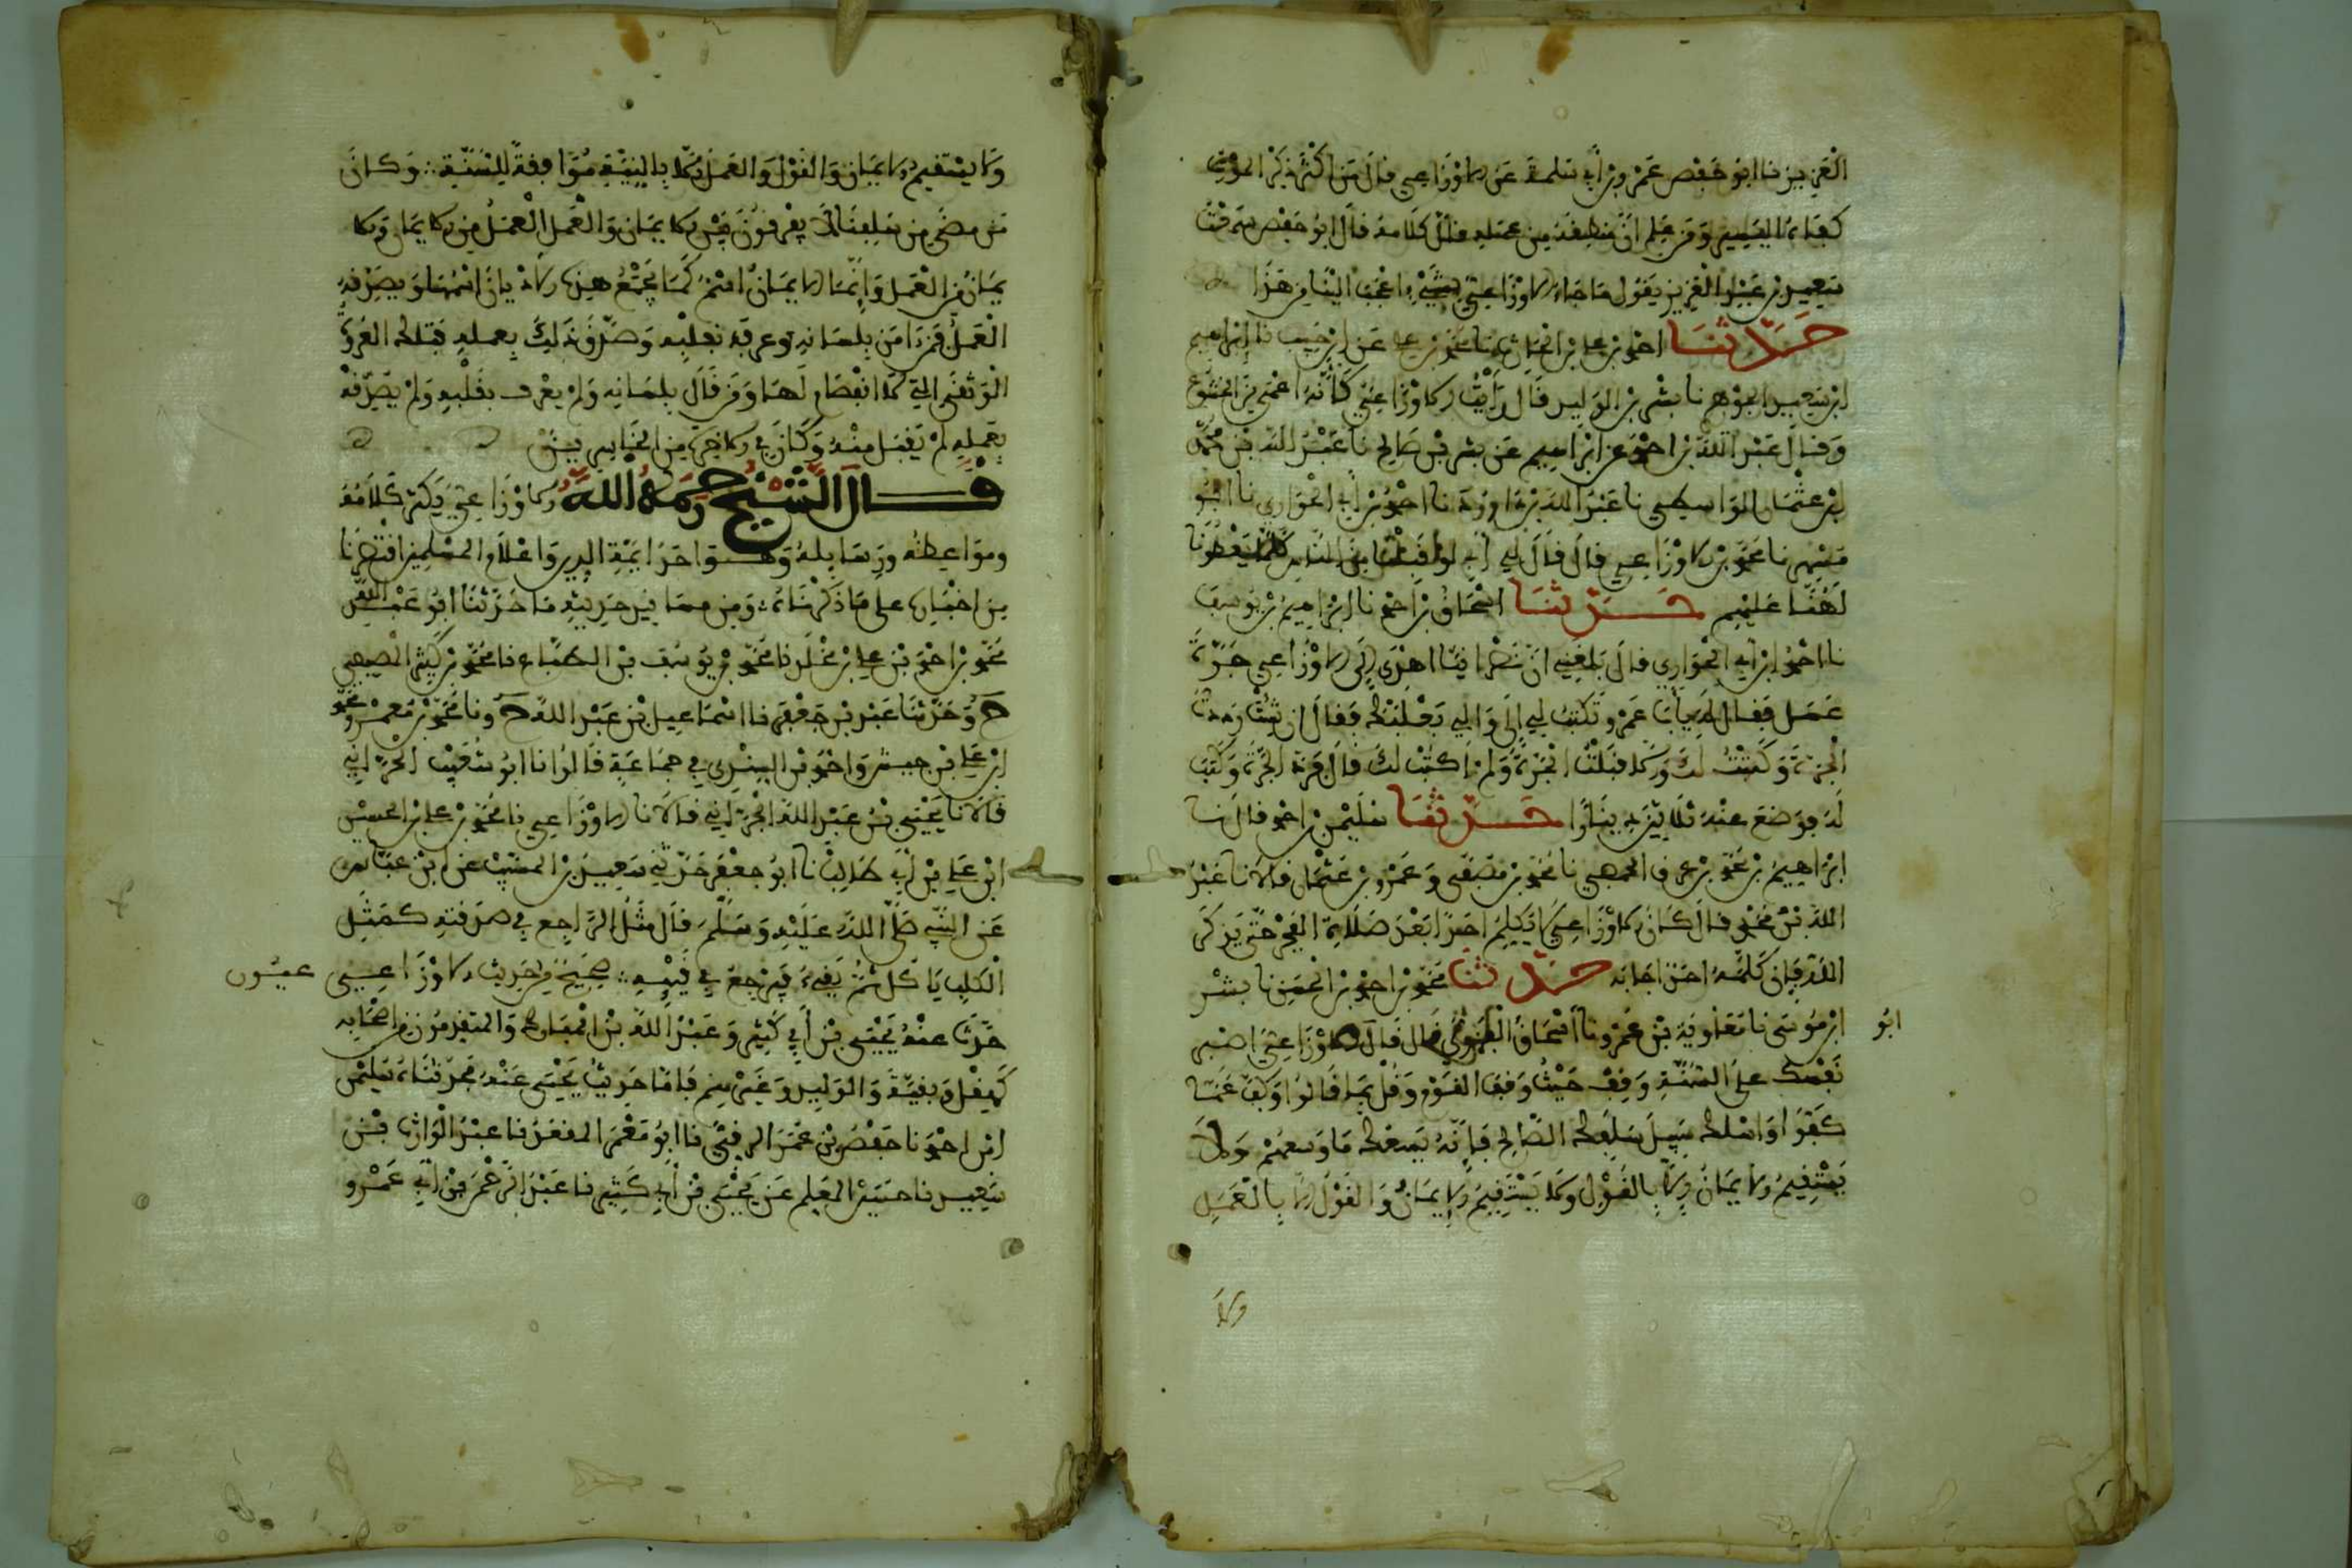 العزيز نا ابو حفص عمرو بن أبي سلمة عن الاوزاعي قال من اكثر ذكر الموت
كفاه اليسير ومن علم ان منطقه من عمله قل كلامه قال ابو حفص سمعت
سعيد بن عبد العزيز يقول ما جاء الاوزاعي بشيء اعجب الينا من هذا
حدثنا احمد بن علي بن الحارث نا محمد بن علي عن ابن حبيب نا ابراهيم
ابن سعيد الجوهري نا بشر بن الوليد قال رأيت الاوزاعي كأنه اعمى من الخشوع
وقال عبد الله بن احمد عن ابراهيم عن بشر بن صالح نا عبد الله بن محمد
بن عثمان الواسطي نا عبد الله بن ابي داود نا احمد بن أبي الحواري نا ابو
مسهر نا محمد بن الاوزاعي قال قال لي أبي لو قبلنا من الناس كلما يعطونا
لهنا عليهم حدثنا اسحاق بن احمد نا ابراهيم بن يوسف
نا احمد ابن أبي الحواري قال بلغني أن نصرانيا اهدى إلى الاوزاعي جرة
عسل فقال له يا أبا عمرو تكتب لي إلى والي بعلبك فقال إن شئت رددت
الجرة وكتبت لك وإلا قبلت الجرة ولم أكتب لك قال فرد الجرة وكتب
له فوضع عنه ثلاثين دينارا حدثنا سليمن بن احمد قال نا
ابراهيم بن محمد بن عرق الحمصي نا محمد بن مصفى وعمرو بن عثمان قالا نا عبد
الملك بن محمد قال كان الاوزاعي لا يكلم احدا بعد صلاة الفجر حتى يذكر
الله فإن كلمه احد اجابه حدثنا محمد بن احمد بن الحسن نا بشر
ابن موسى نا معاوية بن عمرو نا أبو إسحاق الفزاري قال قال الاوزاعي اصبر
ابو
نفسك على السنة وقف حيث وقف القوم وقل بما قالوا وكف عما
كفوا واسلك سبيل سلفك الصالح فإنه يسعك ما وسعهم ولا
يستقيم الايمان إلا بالقول ولا يستقيم الايمان والقول إلا بالعمل
ولا
ولا يستقيم الايمان والقول والعمل إلا بالنية موافقة للسنة وكان
من مضى من سلفنا لا يفرقون بين الايمان والعمل العمل من الايمان والا
يمان من العمل وإنما الايمان اسم كما يجمع هذه الاديان اسمها ويصدقه
العمل فمن آمن بلسانه وعرف بقلبه وصدق ذلك بعمله فتلك العروة
الوثقى التي لا انفصام لها ومن قال بلسانه ولم يعرف بقلبه ولم يصدقه
بعمله لم يقبل منه وكان في الاخرة من الخاسرين
قال الشيخ رحمه الله والاوزاعي يكثر كلامه
ومواعظه ورسايله وهو احد ايمة الدين واعلام المسلمين اقتصرنا
من اخباره على ما ذكرناه ومن مسانيد حديثه ما حدثنا ابو عبد الله
محمد بن احمد بن علي بن مخلد نا محمد بن يوسف بن الطباع نا محمد بن كثير المصيصي
ح وحدثنا عبد بن جعفر نا اسماعيل بن عبد الله ح ونا محمد بن معمر ومحمد
ابن علي بن حبيش واحمد بن السندي في جماعة قالوا نا ابو شعيب الحراني
قالا نا يحيى بن عبد الله الحراني قالا نا الاوزاعي نا محمد بن علي بن الحسين
ابن علي بن أبي طالب نا ابو جعفر حدثني سعيد بن المسيب عن ابن عباس
عن النبي صلى الله عليه وسلم قال مثل الراجع في صدقته كمثل
الكلب يأكل ثم يقيء فيرجع في قيئه صحيح من حديث الاوزاعي
حدث عنه يحيى بن أبي كثير وعبد الله بن المبارك والمتقدمون من اصحابه
كهقل وبقية والوليد وغيرهم فاما حديث يحيى عنه فحدثناه سليمن
ابن احمد نا حفص بن عمر الرقي نا ابو معمر المقعد نا عبد الوارث بن
سعيد نا حسين المعلم عن يحيى بن أبي كثير نا عبد الرحمن بن أبي عمرو